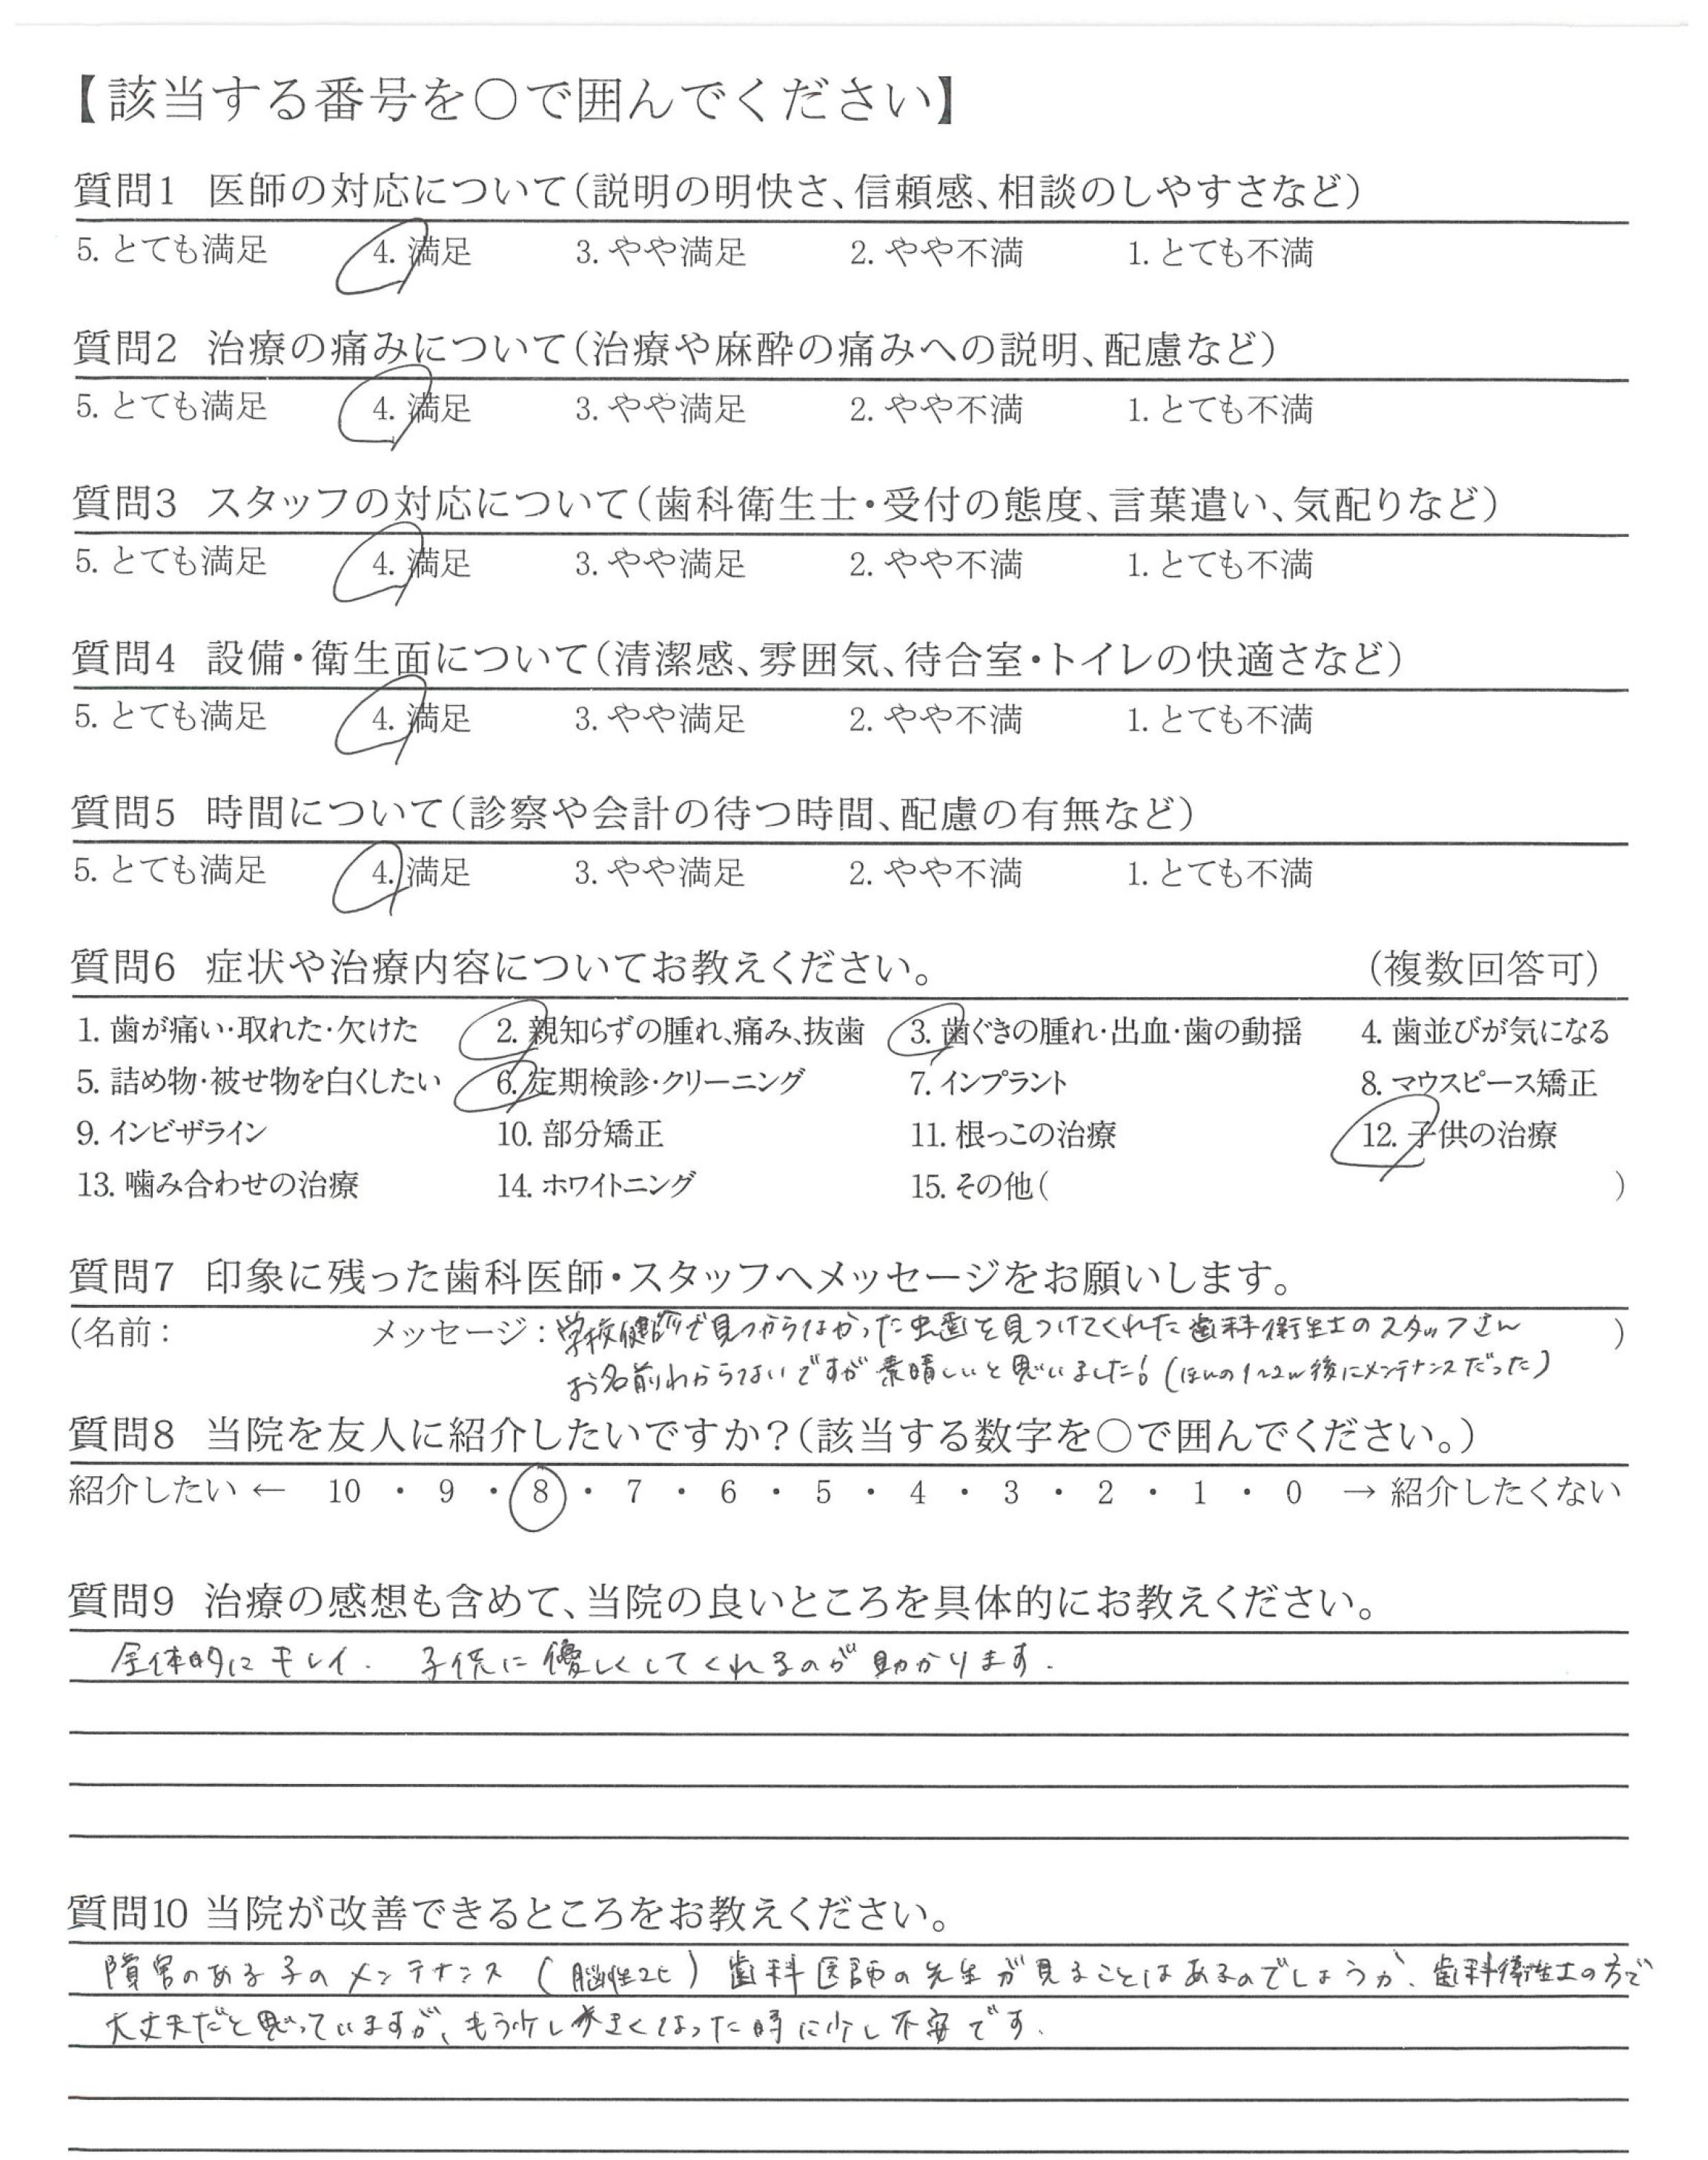 【該当する番号を○で囲んでください】
質問1 医師の対応について(説明の明快さ、信頼感、相談のしやすさなど)
5. とても満足 4. 満足 3. やや満足 2. やや不満 1. とても不満
質問2 治療の痛みについて(治療や麻酔の痛みへの説明、配慮など)
5. とても満足 4. 満足 3. やや満足 2. やや不満 1. とても不満
質問3 スタッフの対応について(歯科衛生士・受付の態度、言葉遣い、気配りなど)
5. とても満足 4. 満足 3. やや満足 2. やや不満 1. とても不満
質問4 設備・衛生面について(清潔感、雰囲気、待合室・トイレの快適さなど)
5. とても満足 4. 満足 3. やや満足 2. やや不満 1. とても不満
質問5 時間について(診察や会計の待つ時間、配慮の有無など)
5. とても満足 4. 満足 3. やや満足 2. やや不満 1. とても不満
質問6 症状や治療内容についてお教えください。 (複数回答可)
1. 歯が痛い・取れた・欠けた 2. 親知らずの腫れ、痛み、抜歯 3. 歯ぐきの腫れ・出血・歯の動揺 4. 歯並びが気になる
5. 詰め物・被せ物を白くしたい 6. 定期検診・クリーニング 7. インプラント 8. マウスピース矯正
9. インビザライン 10. 部分矯正 11. 根っこの治療 12. 子供の治療
13. 噛み合わせの治療 14. ホワイトニング 15. その他( )
質問7 印象に残った歯科医師・スタッフへメッセージをお願いします。
(名前: メッセージ:学校健診で見つからなかった虫歯を見つけてくれた歯科衛生士のスタッフさん )
お名前わからないですが素晴しいと思いました!(ほんの1~2w後にメンテナンスだった)
質問8 当院を友人に紹介したいですか?(該当する数字を○で囲んでください。)
紹介したい ← 10 ・ 9 ・ 8 ・ 7 ・ 6 ・ 5 ・ 4 ・ 3 ・ 2 ・ 1 ・ 0 → 紹介したくない
質問9 治療の感想も含めて、当院の良いところを具体的にお教えください。
全体的にキレイ. 子供に優しくしてくれるのが助かります.
質問10 当院が改善できるところをお教えください。
障害のある子のメンテナンス(脳性マヒ)歯科医師の先生が見ることはあるのでしょうか、歯科衛生士の方で
大丈夫だと思っていますが、もう少し大きくなった時に少し不安です.